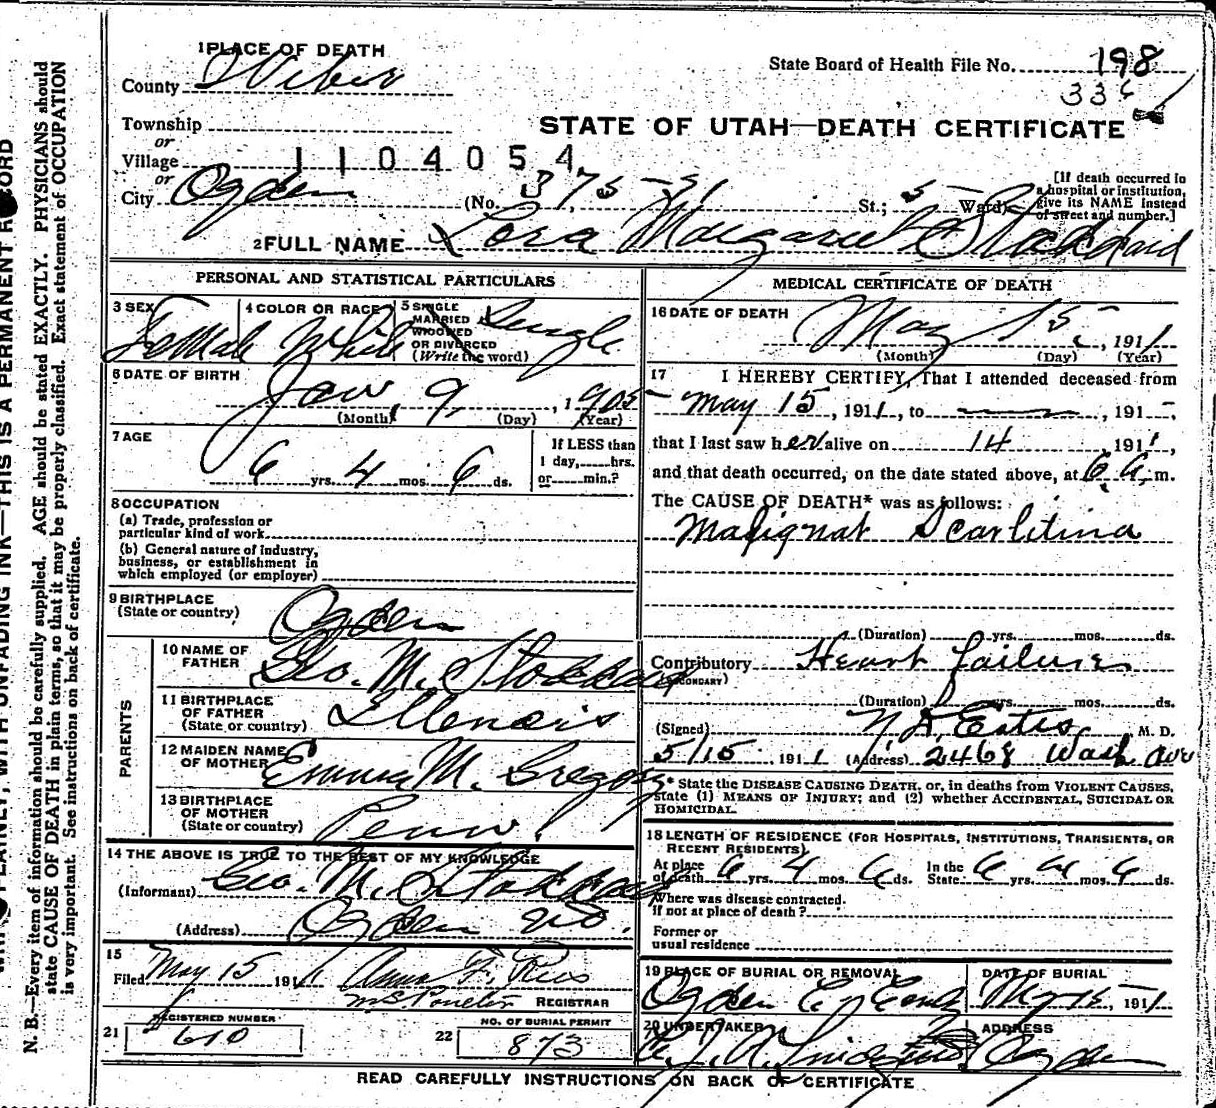 1 PLACE OF DEATH
County Weber
State Board of Health File No. 198
336
Township
or
Village
1104054
STATE OF UTAH—DEATH CERTIFICATE
or
City Ogden (No. 375 - 51 St.; 5 Ward)
[If death occurred in a hospital or institution, give its NAME instead of street and number.]
2 FULL NAME Lora Margaret Stoddard
PERSONAL AND STATISTICAL PARTICULARS
3 SEX Female
4 COLOR OR RACE White
5 SINGLE MARRIED WIDOWED OR DIVORCED (Write the word) Single
6 DATE OF BIRTH Jan 9, 1905
(Month) (Day) (Year)
7 AGE 6 yrs. 4 mos. 6 ds.
If LESS than 1 day, hrs. or min.?
8 OCCUPATION
(a) Trade, profession or
particular kind of work
(b) General nature of industry,
business, or establishment in
which employed (or employer)
9 BIRTHPLACE
(State or country) Ogden
PARENTS
10 NAME OF FATHER Geo. M. Stoddard
11 BIRTHPLACE OF FATHER (State or country) Illenois
12 MAIDEN NAME OF MOTHER Emma M. Gregory
13 BIRTHPLACE OF MOTHER (State or country) Penn.
14 THE ABOVE IS TRUE TO THE BEST OF MY KNOWLEDGE
(Informant) Geo. M. Stoddard
(Address) Ogden
15
Filed May 15 1911 Anna F. REGISTRAR
21 REGISTERED NUMBER 610
22 NO. OF BURIAL PERMIT 873
MEDICAL CERTIFICATE OF DEATH
16 DATE OF DEATH May 15, 1911
(Month) (Day) (Year)
17 I HEREBY CERTIFY, That I attended deceased from
May 15, 1911, to , 191 ,
that I last saw her alive on 14 , 1911,
and that death occurred, on the date stated above, at 6 A. m.
The CAUSE OF DEATH* was as follows:
Malignat Scarlitina
(Duration) yrs. mos. ds.
Contributory Heart failure
(SECONDARY)
(Duration) yrs. mos. ds.
(Signed) Estes M. D.
5/15 1911 (Address) 2468 Wash Ave
* State the DISEASE CAUSING DEATH, or, in deaths from VIOLENT CAUSES,
state (1) MEANS OF INJURY; and (2) whether ACCIDENTAL, SUICIDAL OR
HOMICIDAL.
18 LENGTH OF RESIDENCE (FOR HOSPITALS, INSTITUTIONS, TRANSIENTS, OR
RECENT RESIDENTS).
At place of death 6 yrs. 4 mos. 6 ds. In the State 6 yrs. 4 mos. 6 ds.
Where was disease contracted.
if not at place of death?
Former or
usual residence
19 PLACE OF BURIAL OR REMOVAL Ogden City
DATE OF BURIAL May 15, 1911
20 UNDERTAKER
ADDRESS Ogden
READ CAREFULLY INSTRUCTIONS ON BACK OF CERTIFICATE
WITH UNFADING INK—THIS IS A PERMANENT RECORD
N. B.—Every item of information should be carefully supplied. AGE should be stated EXACTLY. PHYSICIANS should
state CAUSE OF DEATH in plain terms, so that it may be properly classified. Exact statement of OCCUPATION
is very important. See instructions on back of certificate.